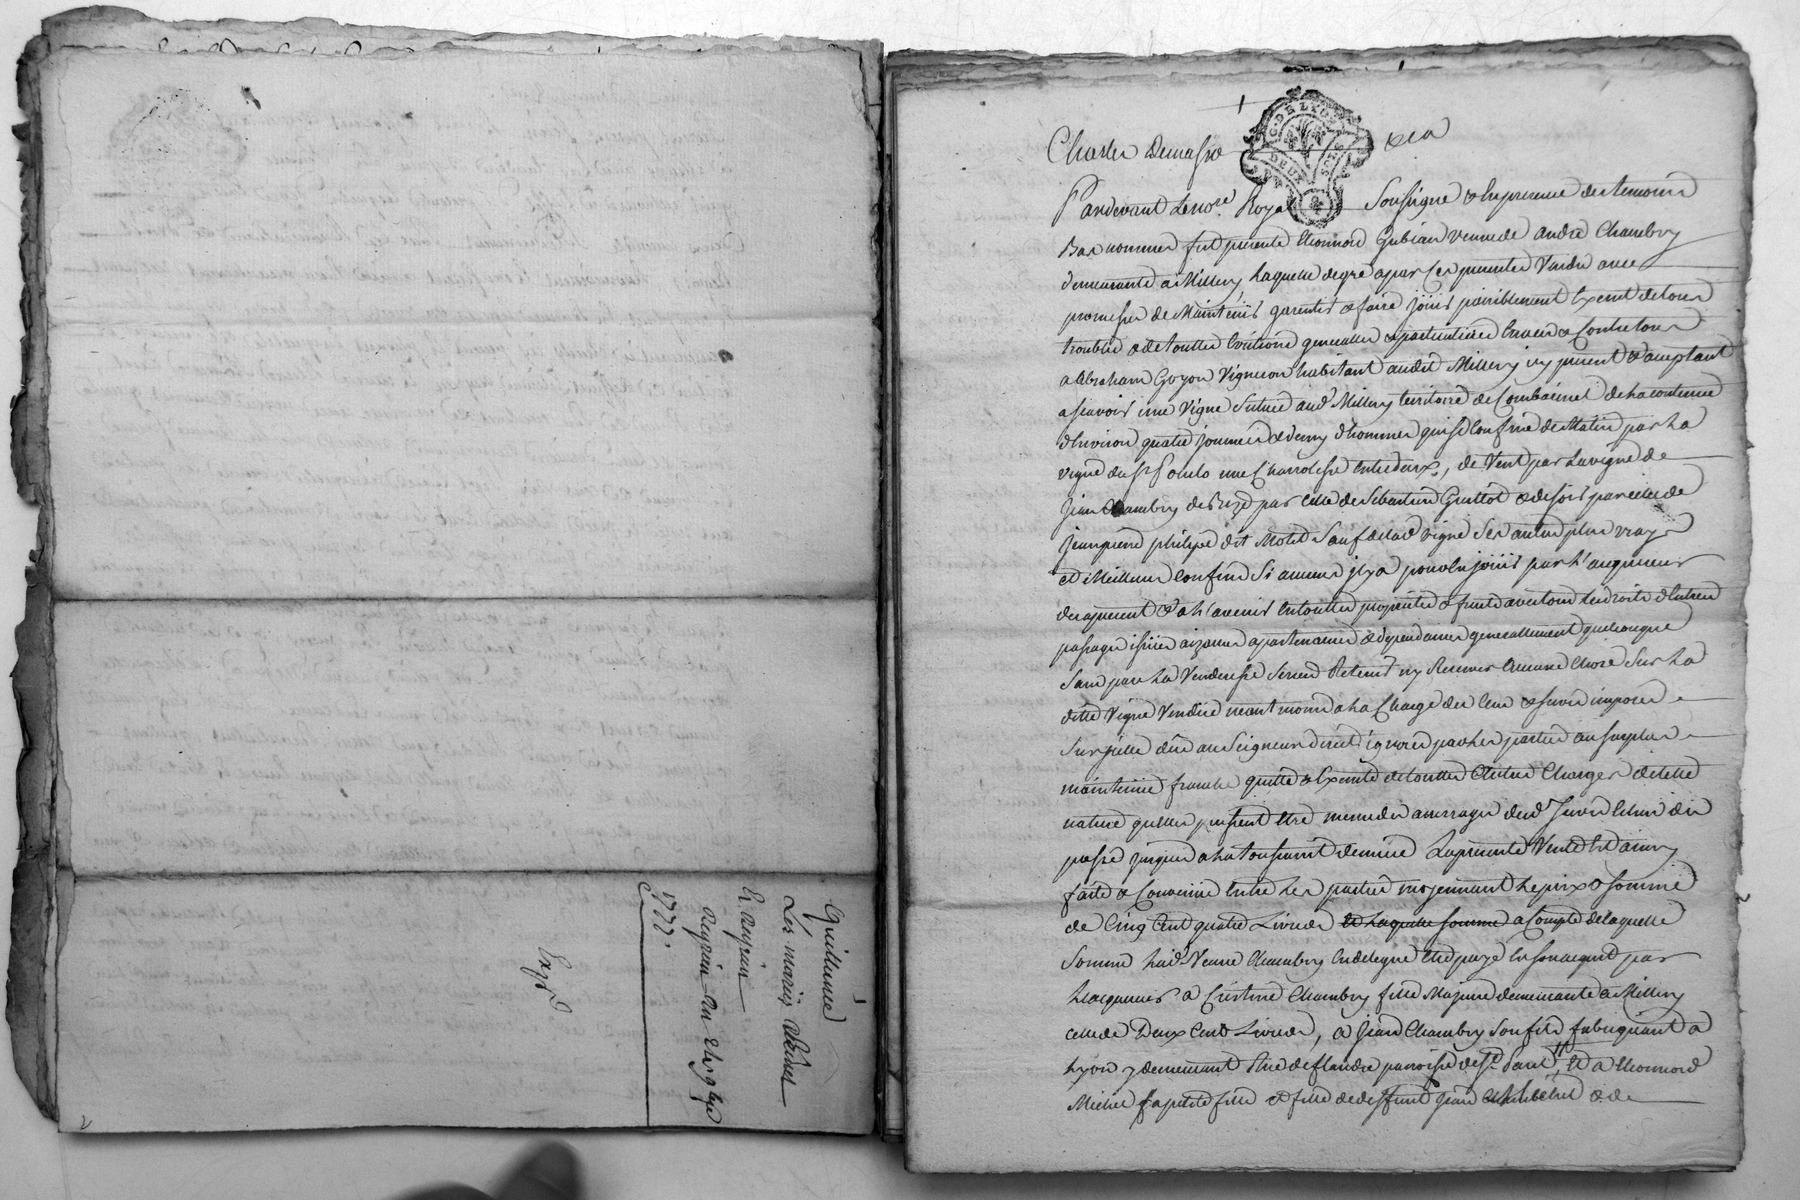 Quittance
Les mariés
Et Reynin
1777.
Expé
G. DE LYON
DEUX SOLS
Pardevant Le no.re Royal Soussigné & En presence des temoins
Bas nommés fut presente Leonnord Gubian veuve de andré Chambry
demeurante a Millery Laquelle de gré a par Ces presentes Vendu avec
promesse de Maintenir garentir & faire joüir paisiblement Exemt de tous
troubles & de touttes Evictions generalles & particulieres Envers & Contre tous
a abraham Goyon Vigneron habitant audit Millery icy present & acceptant
a sçavoir une Vigne Scituée aud Millery territoire de Combainet de la contenue
d'Environ quatre journées & demy d'hommes qui se Confine de Matin par La
vigne du Sr une Charrotesse Entredeux, de Vent par La vigne de
jean Chambry de Bize par Celle de Sebastien Guittot & de soir par celle de
jean pierre philipe dit Motet Sauf de lad Vigne Ses autres plus vrays
et Meilleurs Confins Si aucuns jl y a pour En joüir par L'acquereur
des apresent & a L'avenir En touttes proprietés & fruits avec tous Les droits d'Entrées
passages issües aizances apartenances & dependances generallement quelconques
Sans par La Venderesse S'en Retenir ny Reserver Aucune Chose Sur La
ditte Vigne Vendüe neantmoins a La Charge des Cens & Servis imposés
Sur jcelle dûs au Seigneur direct ignorés par Les parties au Surplus
maintenüe franche quitte & Exemte de touttes Autres Charges de telle
nature qu'elles puissent Etre meme des arrerages desd Servis Echus du
passé jusques a La toussaint derniere La presente Vente Est ainsy
faite & Convenüe Entre Les parties moyennant Le prix & Somme
de Cinq Cent quatre Livres de Laquelle somme a Compte de laquelle
Somme Lad Veuve Chambry En delegue Etre payé En Son acquit par
L'acquereur a Cristine Chambry fille Majeure demeurante a Millery
celle de Deux Cent Livres, a Jean Chambry Son fils fabriquant a
Lyon y demeurant Rue de flandre paroisse de St. Paul Et a Leonnord
Michel Sa petite fille & fille de deffunt jean & de